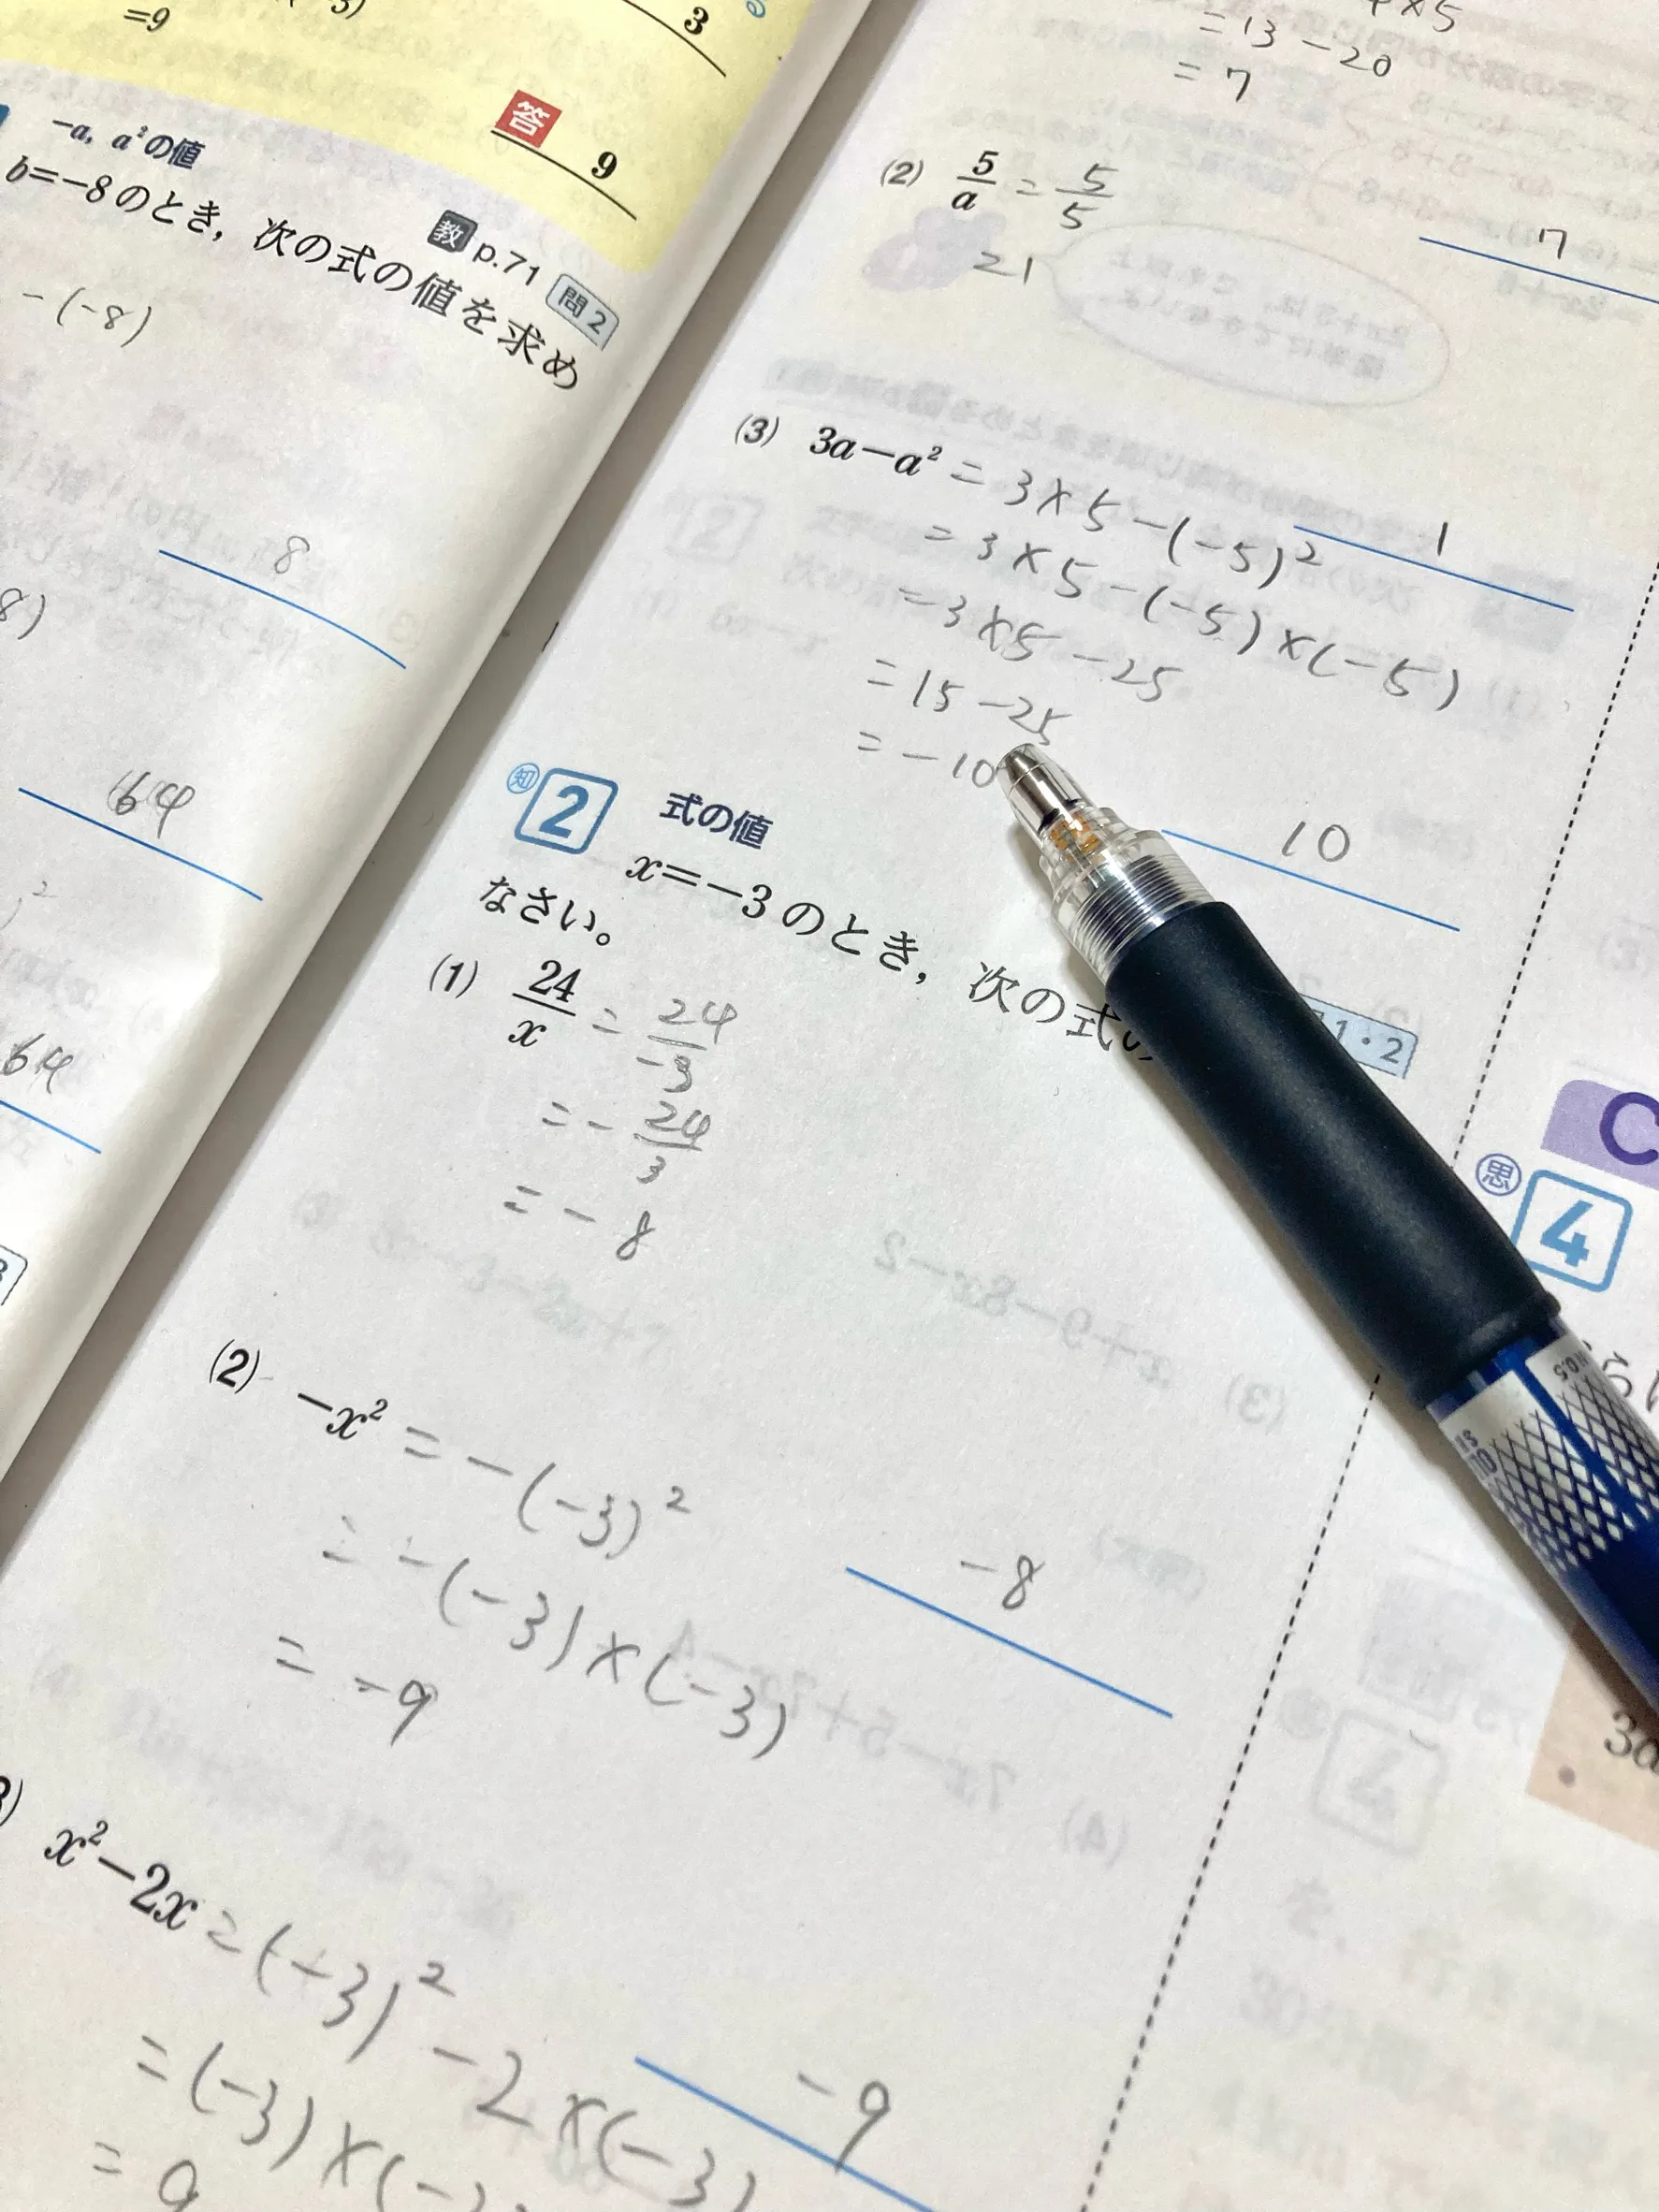 =9
3
答 9
-a, a²の値
教 p.71 問2
b=-8のとき，次の式の値を求め
-(-8)
8
8)
64
2
64
×5
=13-20
=7
7
(2) 5/a = 5/5
=1
1
(3) 3a-a² = 3×5-(-5)²
=3×5-(-5)×(-5)
=3×5-25
=15-25
=-10
10
知 2 式の値
x=-3のとき，次の式
1・2
なさい。
(1) 24/x = 24/-3
=-24/3
=-8
-8
(2) -x² = -(-3)²
=-(-3)×(-3)
=-9
-9
3) x²-2x=(-3)²-2×(-3)
=(-3)×(-
=9
C
思 4
0.5
3a